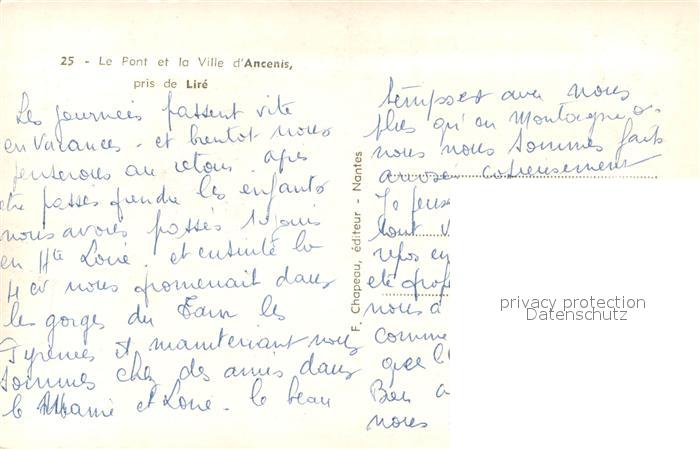 25 - Le Pont et la Ville d'Ancenis,
pris de Liré
Les journées passent vite
en vacances - et bientot nous
penserons au retour. après
être passés prendre les enfants
nous avons passés 10 jours
en Hte Loire. et ensuite la
4 cv nous promenait dans
les gorges du Tarn les
Pyrénées et maintenant nous
sommes chez des amis dans
le Maine et Loire. le beau
F. Chapeau, éditeur - Nantes
temps est avec nous
plus qu'en Montagne, 
nous nous sommes faits
arroser copieusement
Je pense
tout v
repos en
été prof
nous a
comme
que l
Bon a
nous
privacy protection
Datenschutz